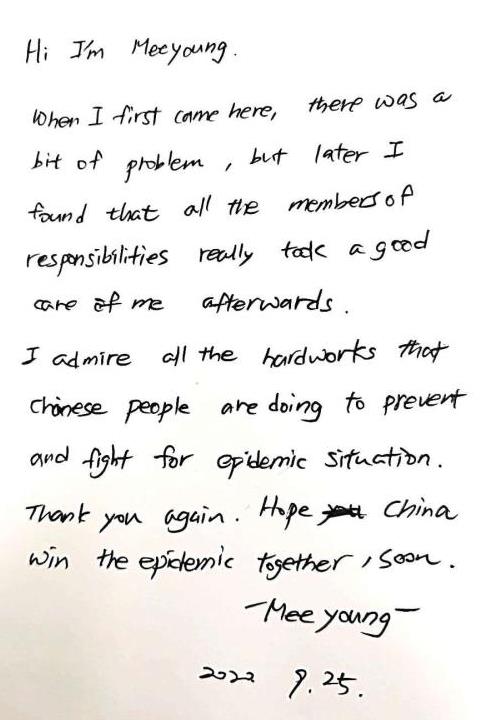 Hi I'm Meeyoung.
When I first came here, there was a
bit of problem, but later I
found that all the members of
responsibilities really took a good
care of me afterwards.
I admire all the hardworks that
Chinese people are doing to prevent
and fight for epidemic situation.
Thank you again. Hope you China
win the epidemic together, soon.
-Mee young-
2022 9.25.